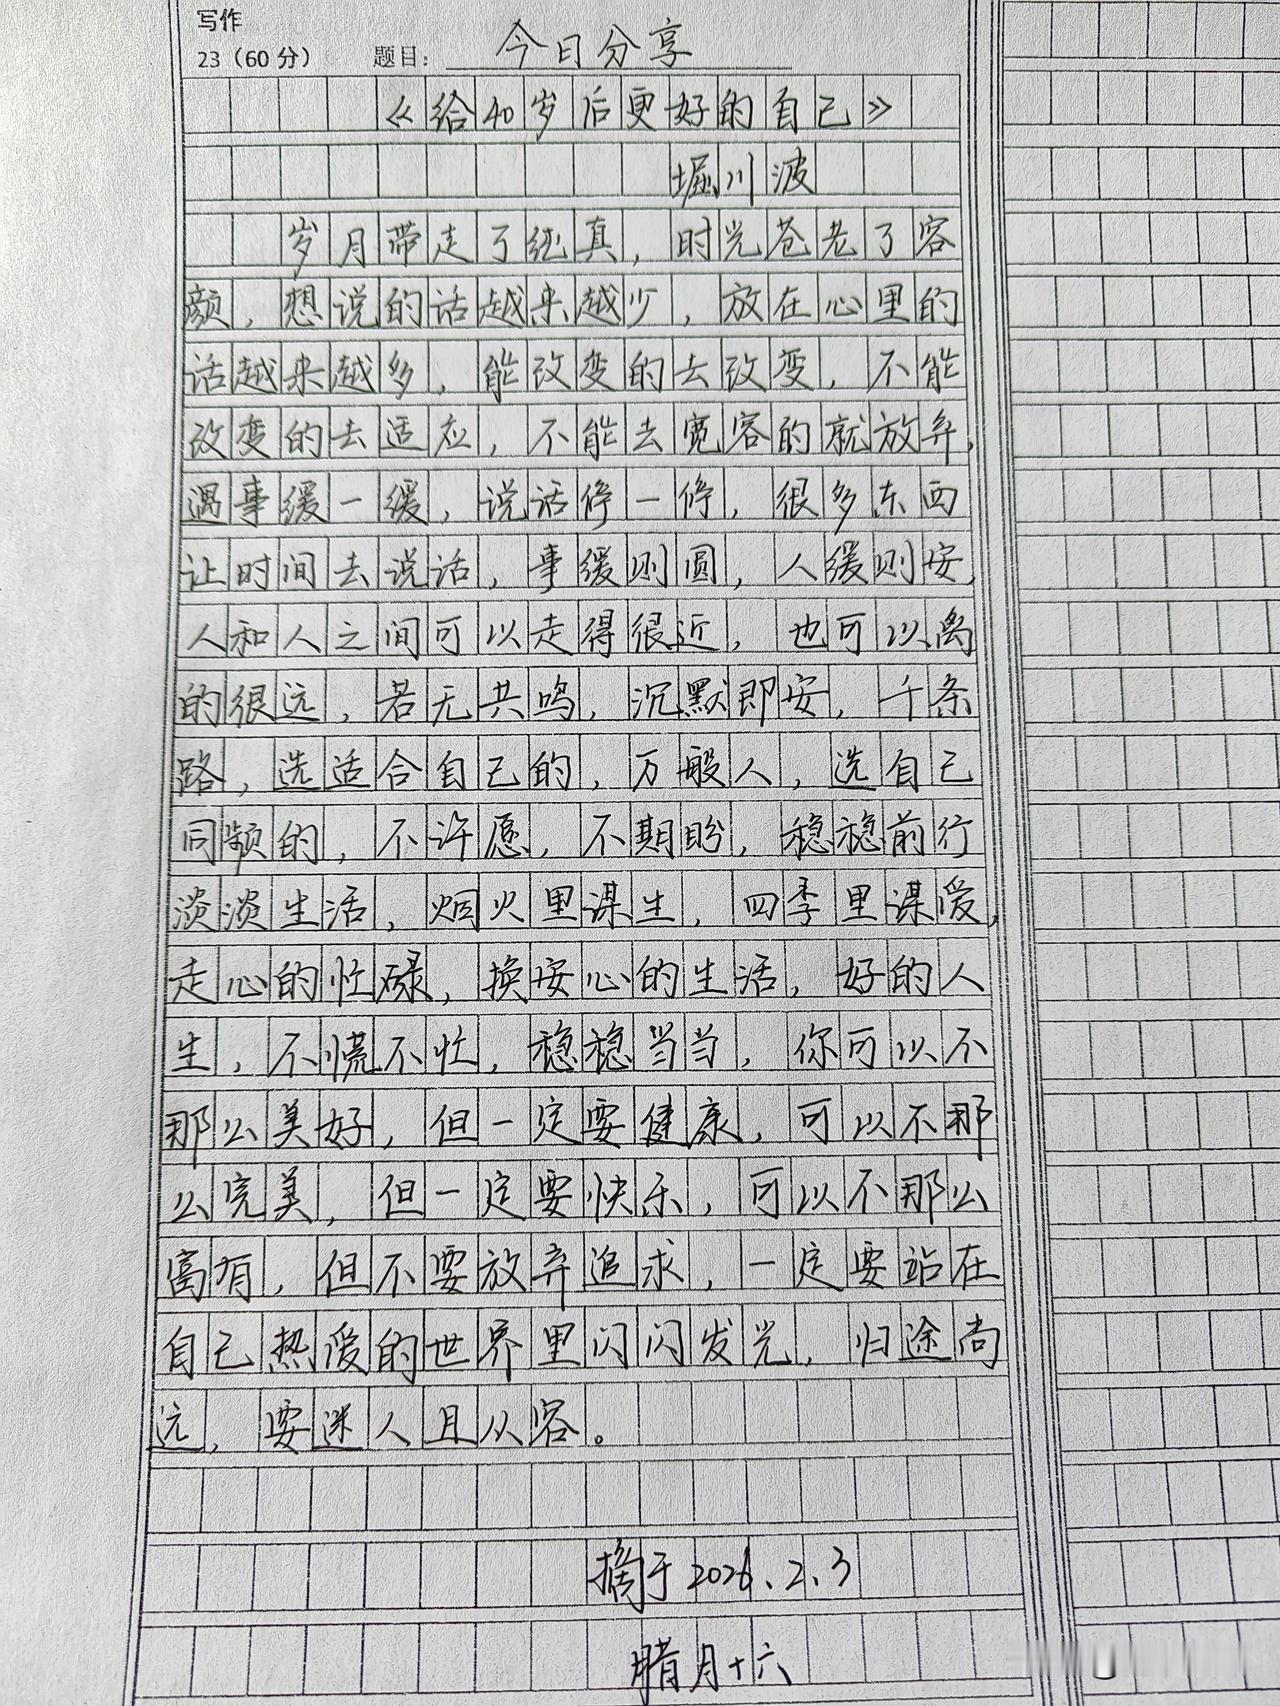 写作
23（60分） 题目： 今日分享
《给40岁后更好的自己》
堀川波
岁月带走了纯真，时光苍老了容
颜，想说的话越来越少，放在心里的
话越来越多，能改变的去改变，不能
改变的去适应，不能去宽容的就放弃，
遇事缓一缓，说话停一停，很多东西
让时间去说话，事缓则圆，人缓则安，
人和人之间可以走得很近，也可以离
的很远，若无共鸣，沉默即安，千条
路，选适合自己的，万般人，选自己
同频的，不许愿，不期盼，稳稳前行
淡淡生活，烟火里谋生，四季里谋爱，
走心的忙碌，换安心的生活，好的人
生，不慌不忙，稳稳当当，你可以不
那么美好，但一定要健康，可以不那
么完美，但一定要快乐，可以不那么
富有，但不要放弃追求，一定要站在
自己热爱的世界里闪闪发光，归途尚
远，要迷人且从容。
摘于2026、2、3
腊月十六